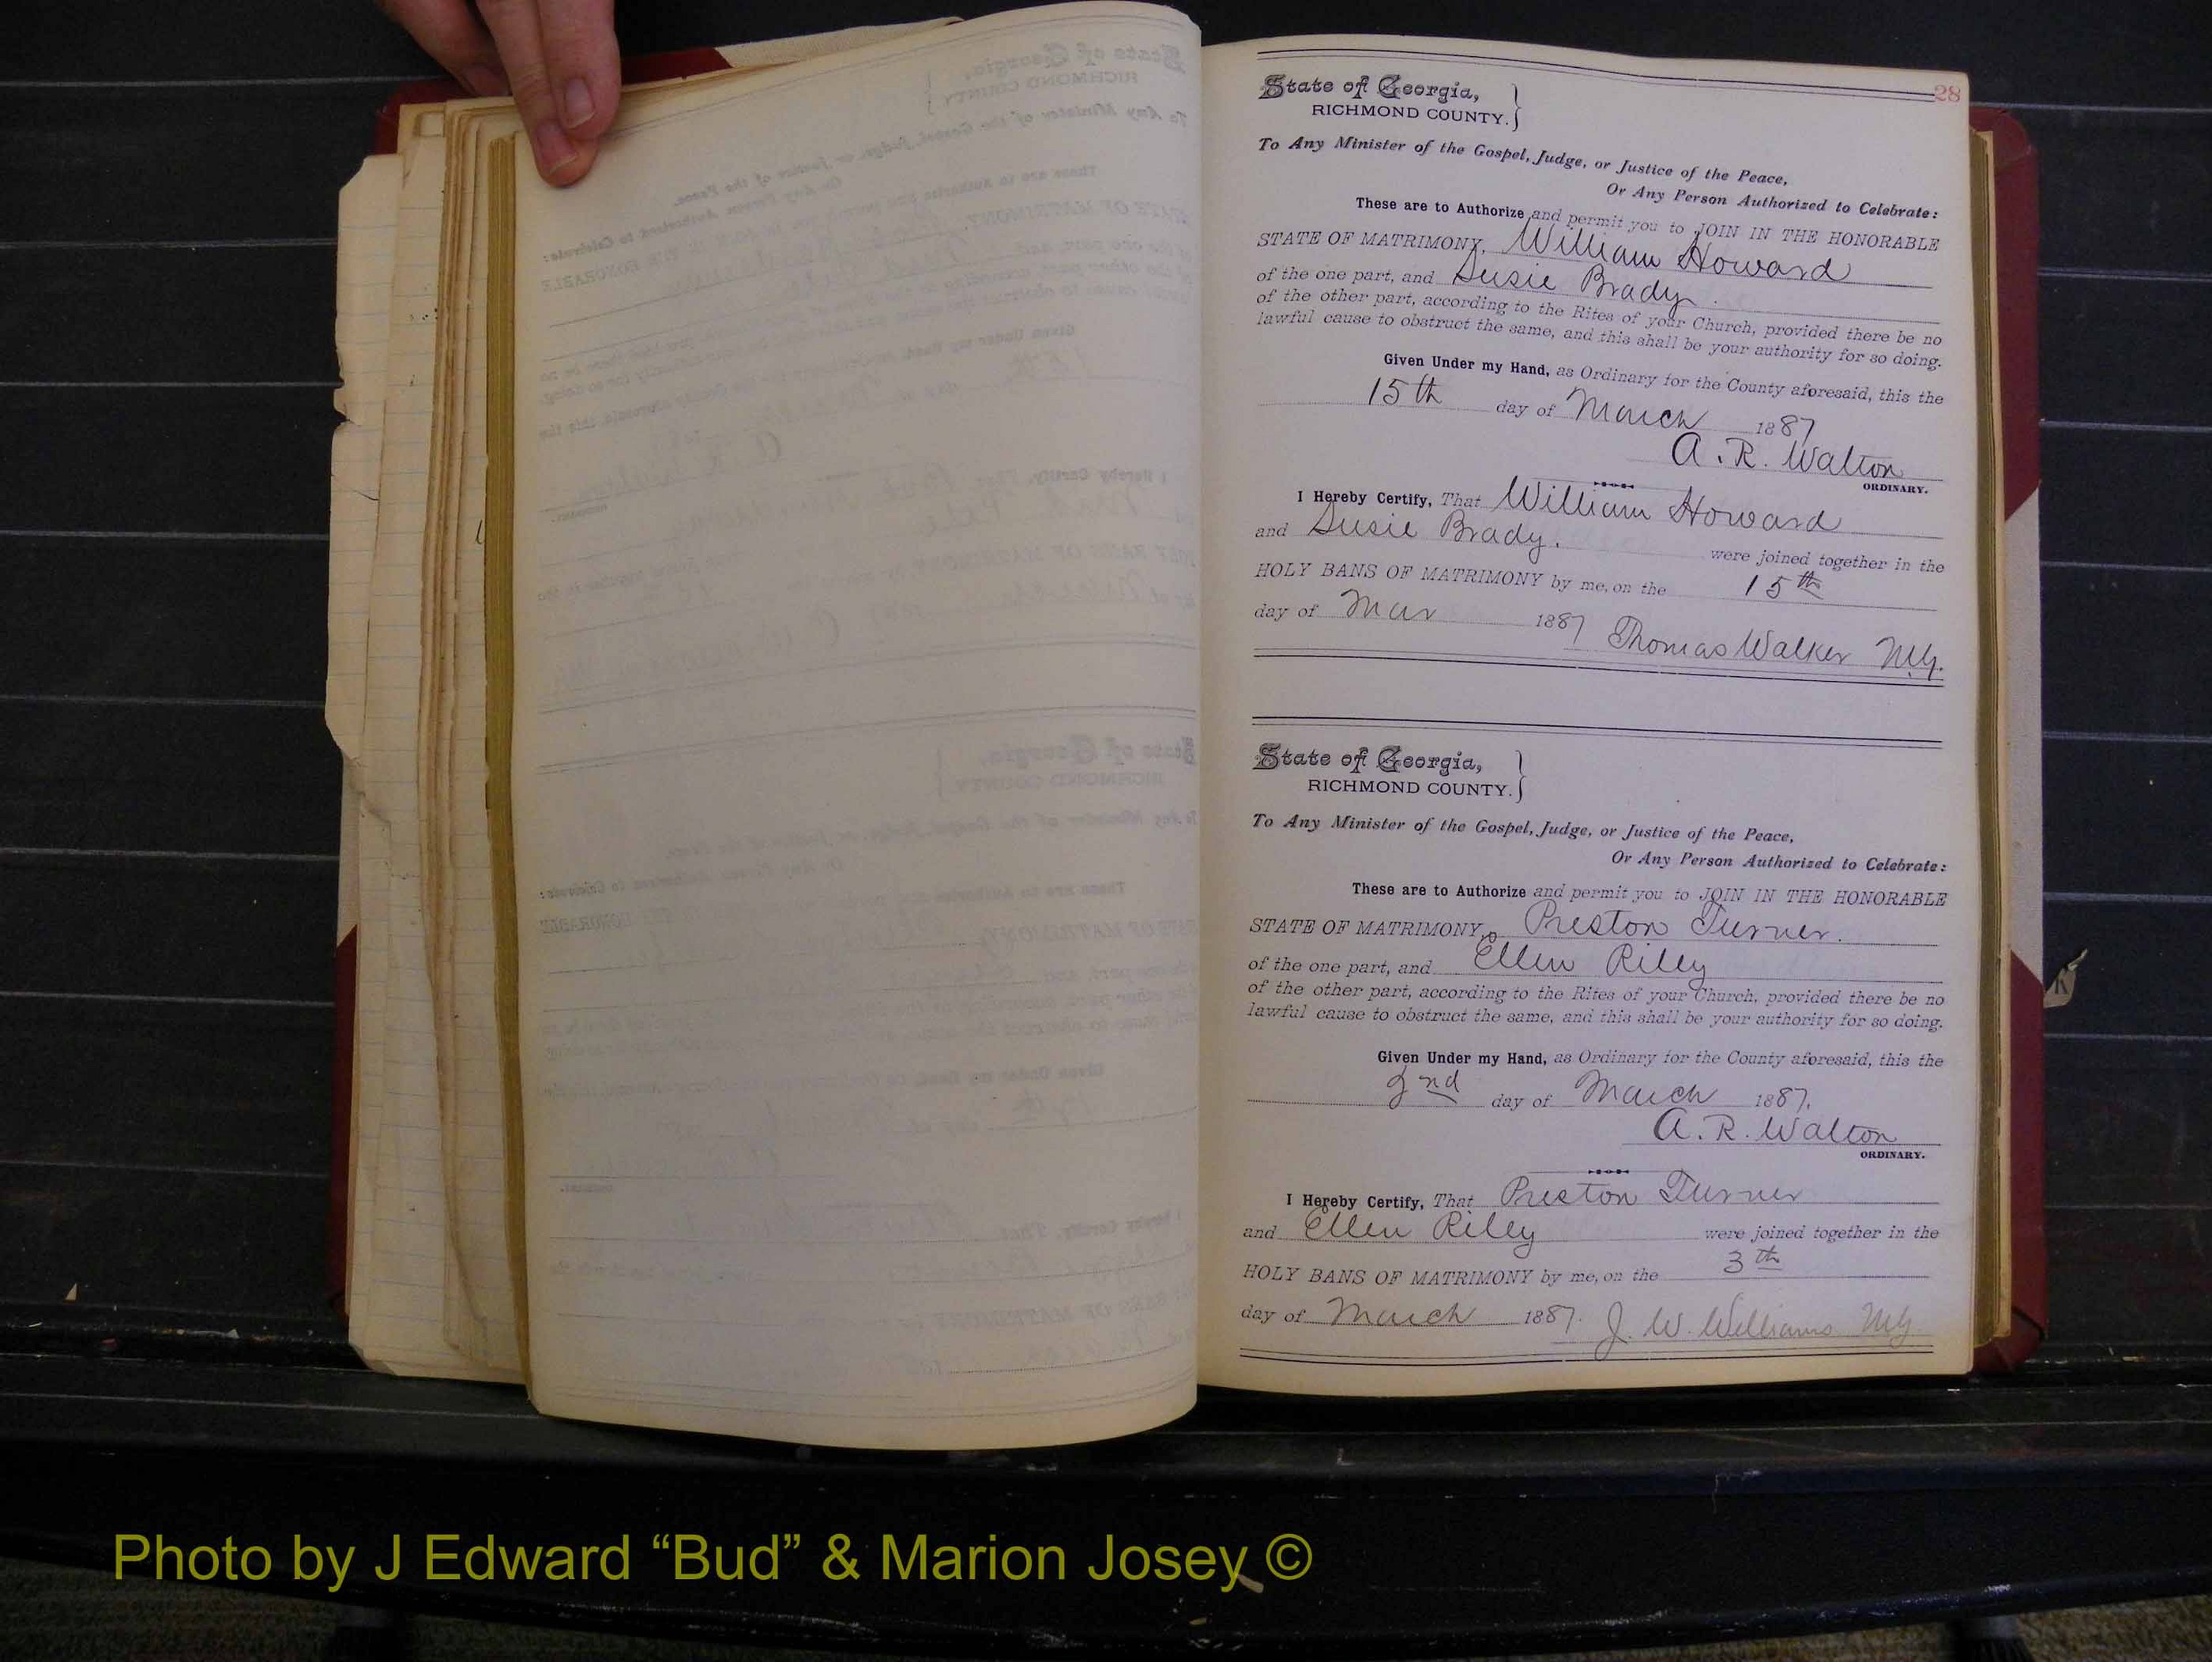 28
State of Georgia,
RICHMOND COUNTY.
To Any Minister of the Gospel, Judge, or Justice of the Peace,
Or Any Person Authorized to Celebrate:
These are to Authorize and permit you to JOIN IN THE HONORABLE
STATE OF MATRIMONY, William Howard
of the one part, and Susie Brady.
of the other part, according to the Rites of your Church, provided there be no
lawful cause to obstruct the same, and this shall be your authority for so doing.
Given Under my Hand, as Ordinary for the County aforesaid, this the
15th day of March 1887
A. R. Walton
ORDINARY.
I Hereby Certify, That William Howard
and Susie Brady. were joined together in the
HOLY BANS OF MATRIMONY by me, on the 15th
day of Mar 1887 Thomas Walker M.G.
State of Georgia,
RICHMOND COUNTY.
To Any Minister of the Gospel, Judge, or Justice of the Peace,
Or Any Person Authorized to Celebrate:
These are to Authorize and permit you to JOIN IN THE HONORABLE
STATE OF MATRIMONY, Preston Turner.
of the one part, and Ellen Riley
of the other part, according to the Rites of your Church, provided there be no
lawful cause to obstruct the same, and this shall be your authority for so doing.
Given Under my Hand, as Ordinary for the County aforesaid, this the
2nd day of March 1887.
A. R. Walton
ORDINARY.
I Hereby Certify, That Preston Turner
and Ellen Riley were joined together in the
HOLY BANS OF MATRIMONY by me, on the 3th
day of March 1887. J. W. Williams MG
Photo by J Edward “Bud” & Marion Josey ©